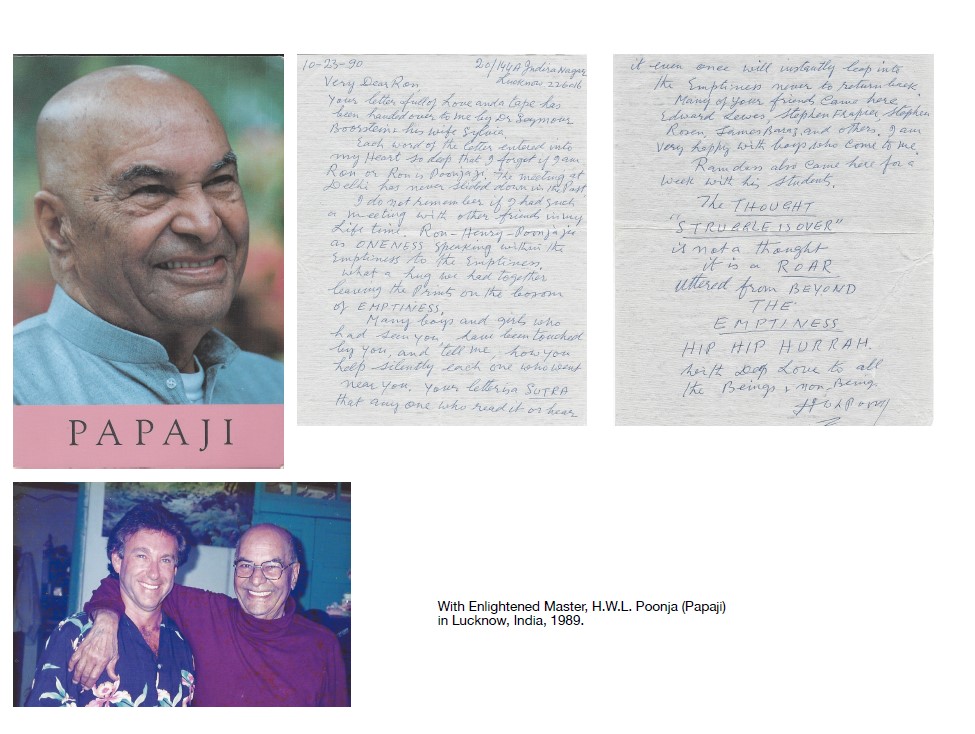 PAPAJI
10-23-90
20/144A Indira Nagar
Lucknow 226016
Very Dear Ron
Your letter full of Love and a Tape has
been handed over to me by Dr Seymour
Boorstein & his wife Sylvia.
Each word of the letter entered into
my Heart so deep that I forgot if I am
Ron or Ron is Poonjaji. The meeting at
Delhi has never slided down in the Past
I do not remember if I had such
a meeting with other friends in my
Life time. Ron-Henry-Poonjaji
as ONENESS Speaking within the
Emptiness to the Emptiness,
what a hug we had together
leaving the Prints on the bosom
of EMPTINESS.
Many boys and girls who
had seen you, have been touched
by you, and tell me, how you
help silently each one who went
near you. Your letter is a SUTRA
that any one who read it or hear
it even once will instantly leap into
the Emptiness never to return back.
Many of your friends Came here
Edward Lewes, Stephen Frapier, Stephen
Rosen, James Baraz, and others. I am
very happy with boys who come to me.
Ramdass also came here for a
week with his students.
The THOUGHT
"STRUBBLE IS OVER"
is not a thought
it is a ROAR
uttered from BEYOND
THE
EMPTINESS
HIP HIP HURRAH.
with Deep Love to all
the Beings & non Being.
With Enlightened Master, H.W.L. Poonja (Papaji)
in Lucknow, India, 1989.